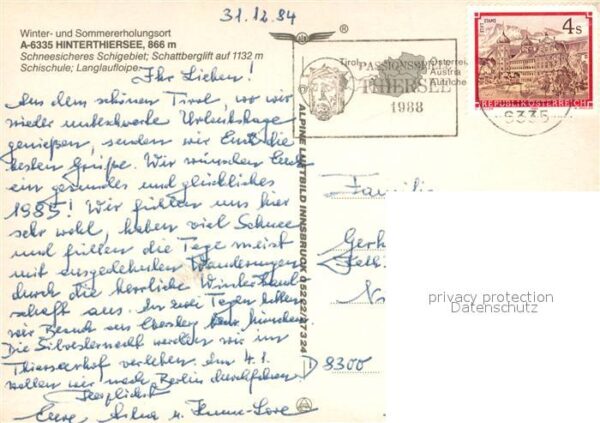 31.12.84
Winter- und Sommererholungsort
A-6335 HINTERTHIERSEE, 866 m
Schneesicheres Schigebiet; Schattberglift auf 1132 m
Schischule; Langlaufloipe
Ihr Lieben!
Aus dem schönen Tirol, wo wir
wieder unbeschwerte Urlaubstage
genießen, senden wir Euch die
besten Grüße. Wir wünschen Euch
ein gesundes und glückliches
1985! Wir fühlen uns hier
sehr wohl, haben viel Schnee
und füllen die Tage meist
mit ausgedehnten Wanderungen
durch die herrliche Winterland
schaft aus. In zwei Tagen
wir Besuch aus
Die Silvesternacht werden wir im
Thierseerhof verleben. Am 4.1.
wollen wir nach Berlin durchfahren
Herzlichst
Eure u.
ALPINE LUFTBILD INNSBRUCK 05222/27324
Tirol
Österrei
Austria
Autriche
PASSIONSSPIE
THIERSEE
1988
STIFT STAMS
4s
REPUBLIK ÖSTERREICH
6335
Familie
Gerh
D 8300
privacy protection
Datenschutz